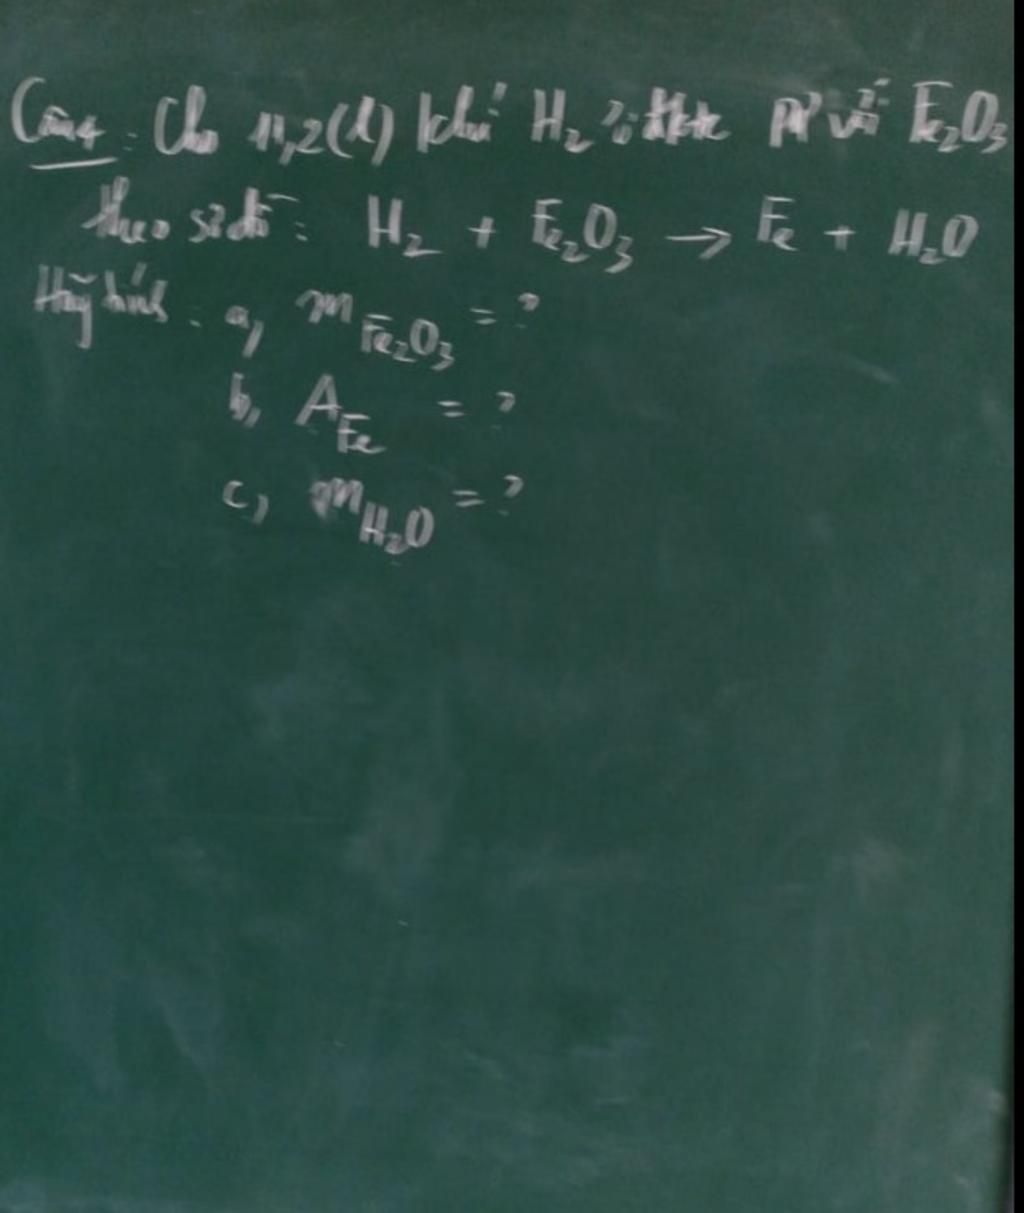 Câu 4: Cho 11,2(l) khí H₂ ở đktc PƯ với Fe₂O₃
theo sơ đồ: H₂ + Fe₂O₃ → Fe + H₂O
Hãy tính: a, m Fe₂O₃ = ?
b, A Fe = ?
c, m H₂O = ?